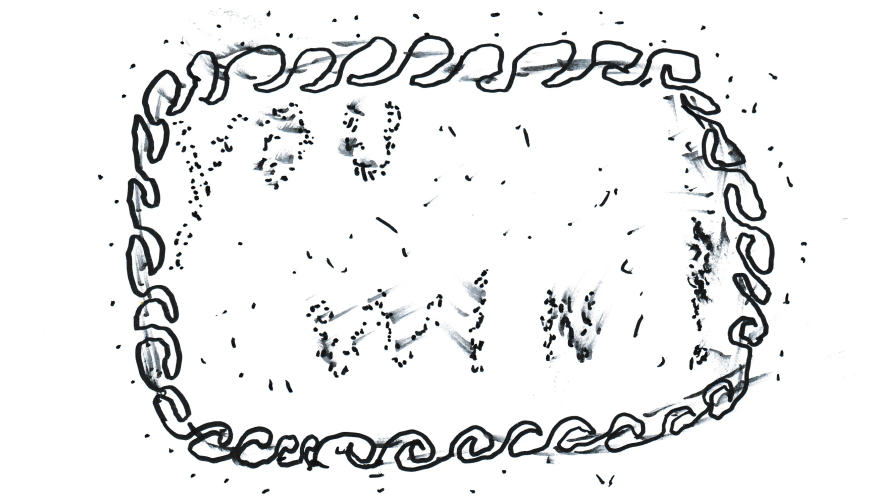 YOU
WIN!